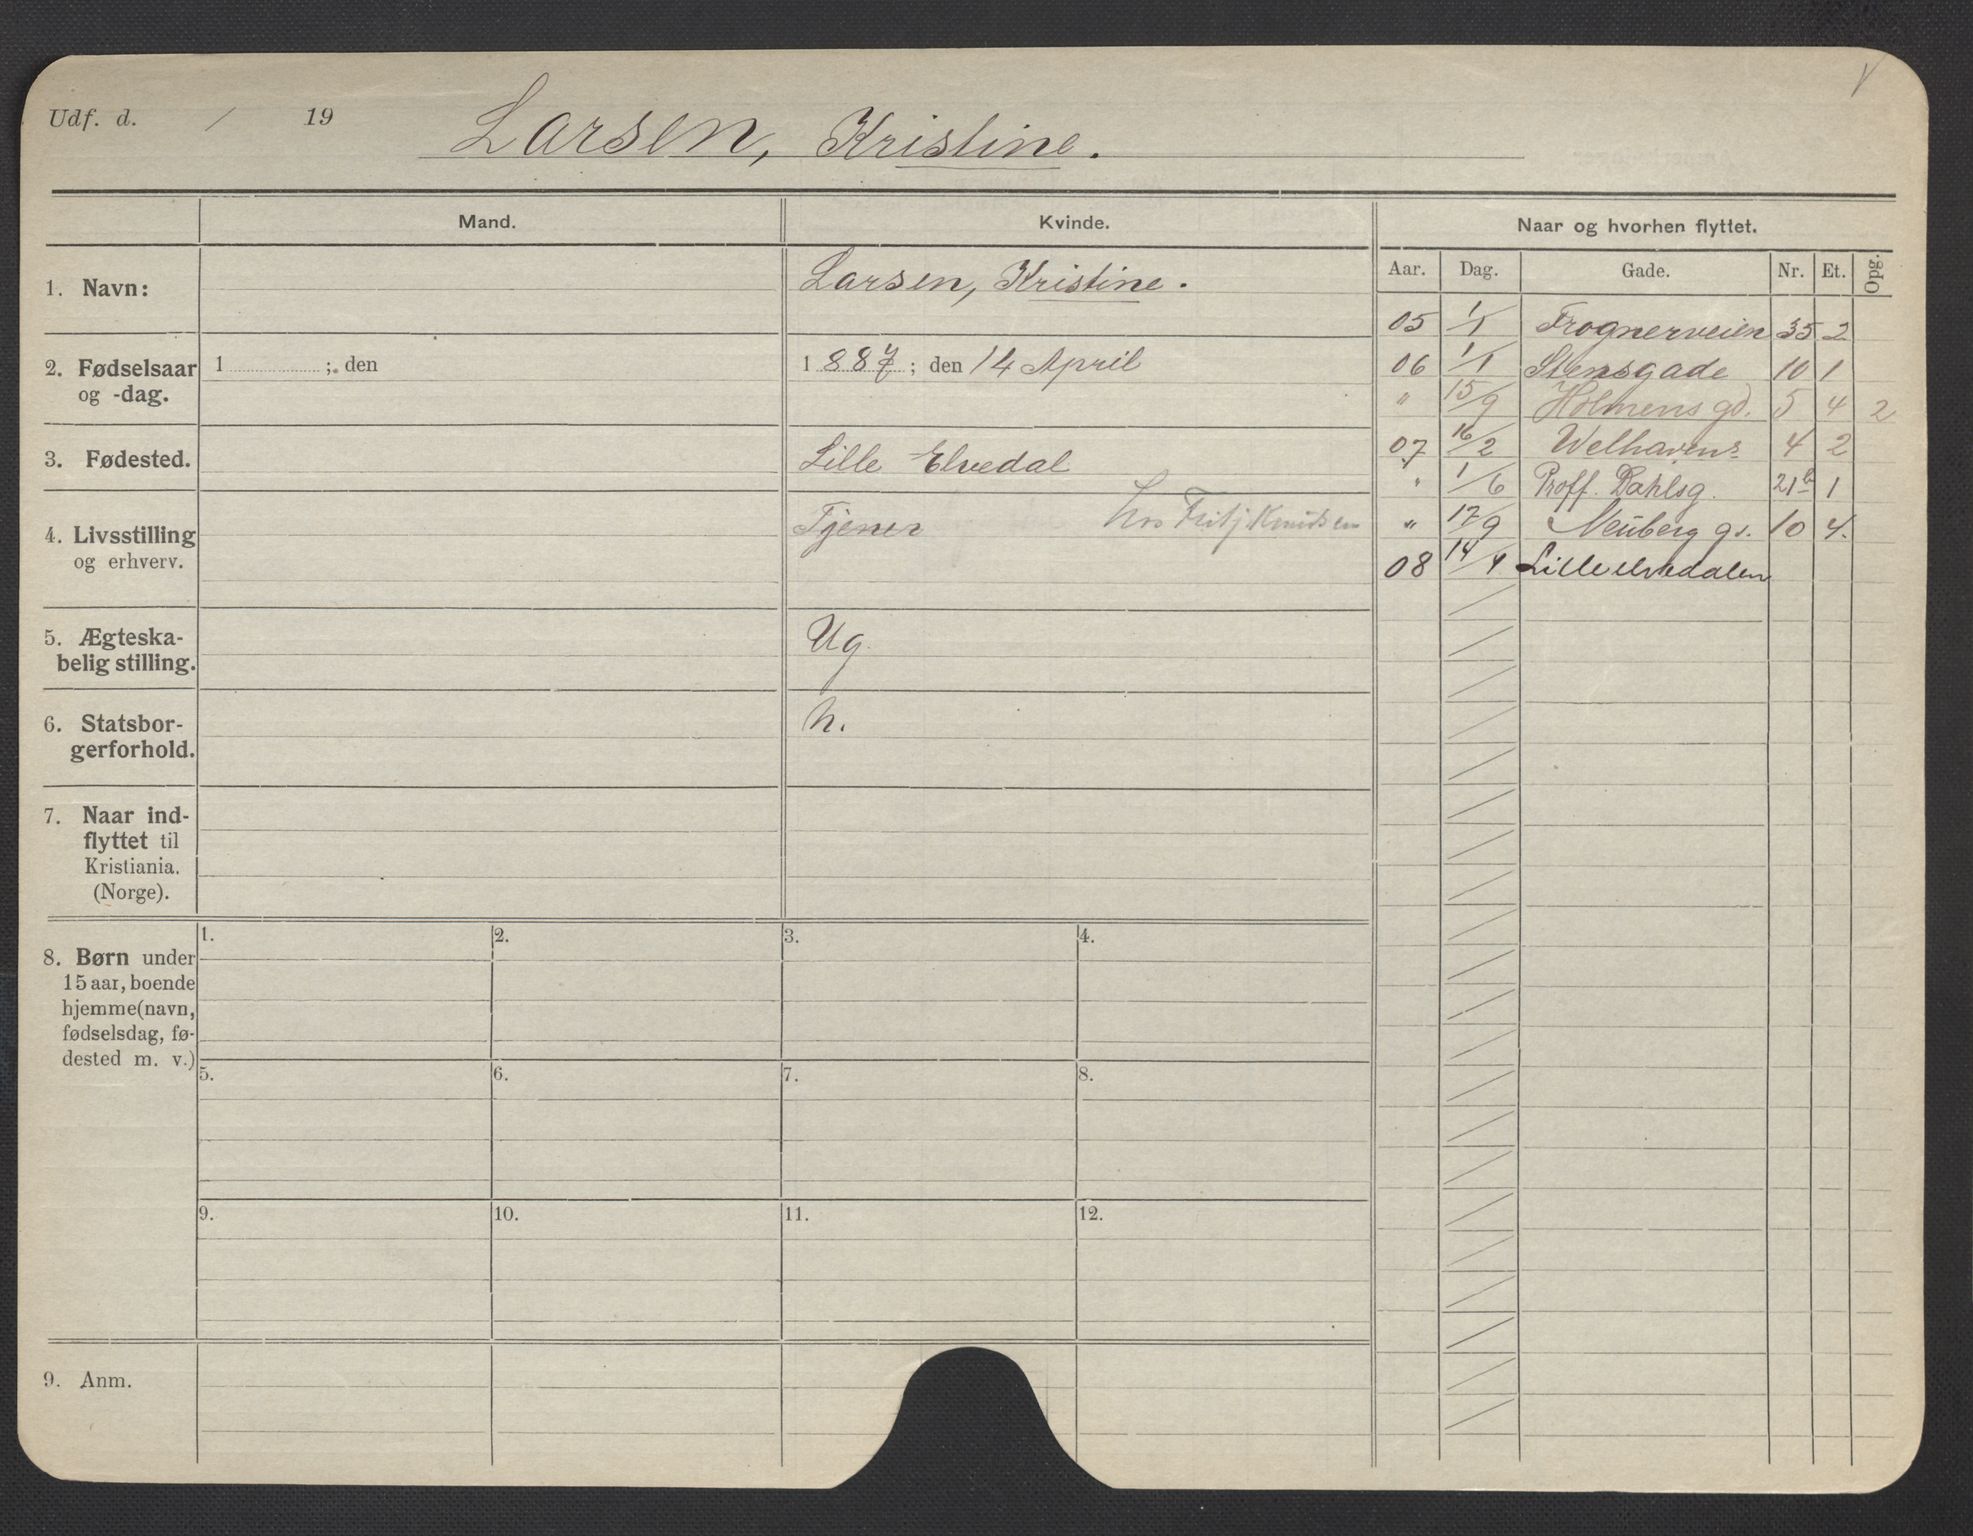 Udf. d. / 19 Larsen, Kristine.
Mand. Kvinde. Naar og hvorhen flyttet.
Aar. Dag. Gade. Nr. Et. Opg.
1. Navn: Larsen, Kristine.
2. Fødselsaar og -dag. 1 ; den 1887 ; den 14 April
3. Fødested. Lille Elvedal
4. Livsstilling og erhverv. Tjener hos Fritj Knudsen
5. Ægteskabelig stilling. Ug.
6. Statsborgerforhold. n.
7. Naar indflyttet til Kristiania. (Norge).
8. Børn under 15 aar, boende hjemme (navn, fødselsdag, fødested m. v.)
1. 2. 3. 4.
5. 6. 7. 8.
9. 10. 11. 12.
9. Anm.
05 1/1 Frognerveien 35 2
06 1/1 Stensgade 10 1
" 15/9 Holmens gd. 5 4 2
07 16/2 Welhavens 4 2
" 1/6 Proff. Dahlsg. 21b 1
" 17/9 Neuberg gd. 10 4.
08 14/4 Lille elvedalen